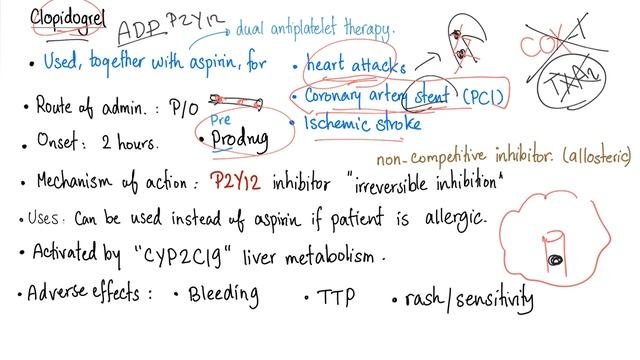 Clopidogrel ADP P2Y12
dual antiplatelet therapy.
• Used, together with aspirin, for
• heart attacks
• Coronary artery stent (PCI)
• Ischemic stroke
COX-1
TXA2
• Route of admin. : P/O
• Onset: 2 hours.
Pre
• Prodrug
non-competitive inhibitor. (allosteric)
• Mechanism of action : P2Y12 inhibitor "irreversible inhibition"
• Uses: Can be used instead of aspirin if patient is allergic.
• Activated by "CYP2C19" liver metabolism.
• Adverse effects : • Bleeding • TTP • rash/sensitivity